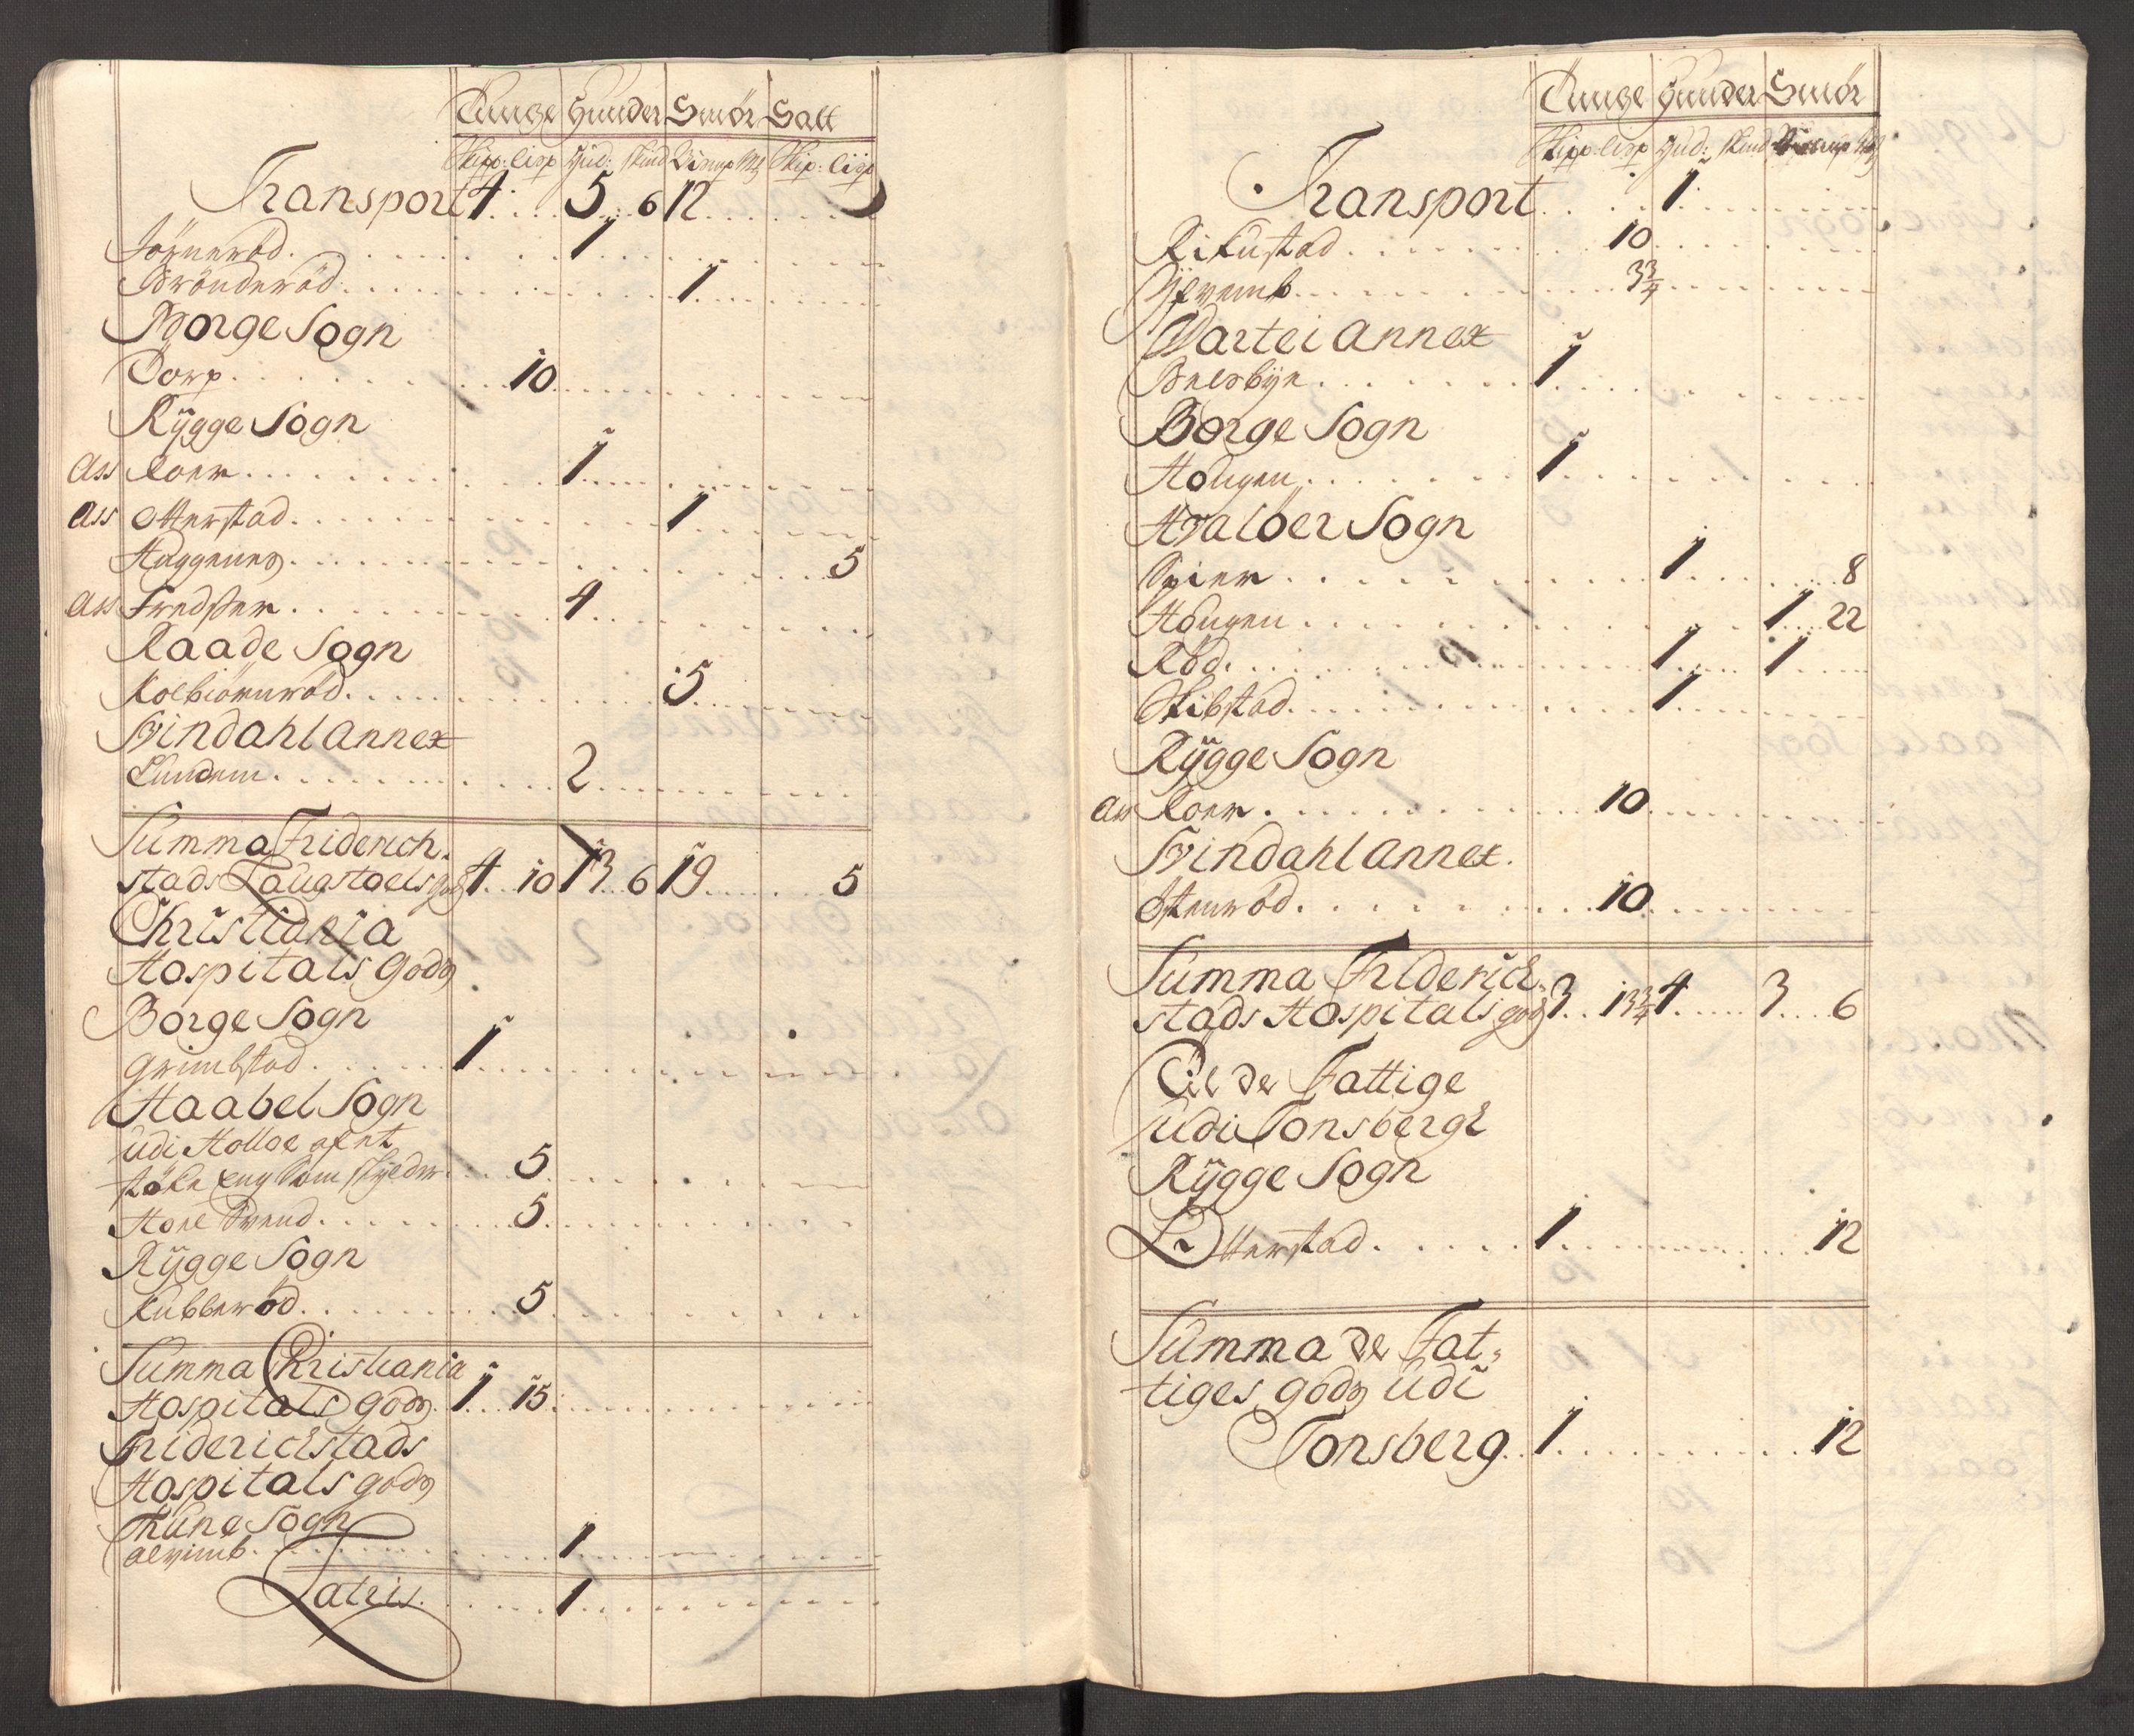 Tunge Huuder Smör Salt
Skipp: lisp Hud: skind Bismp Mk Skip: lisp
Transport 4 5 6 12
Jörneröd 1
Brönderöd 1
Borge Sogn
Torp 10
Rÿgge Sogn
Ass Roer 1
Ass Otterstad 1
Huggenes 5
Ass Fredssen 4
Raade Sogn
Kolbiörneröd 5
Svindahl Annex
Lundem 2
Summa Friderich-
stads Laugstoels godz 4 10 13 6 19 5
Christiania
Hospitals Godz
Borge Sogn
Grimbstad 1
Haabel Sogn
udi Holloe af et
støke Eng som skÿlder 5
Hoel Svend 5
Rÿgge Sogn
Kubberöd 5
Summa Christiania
Hospitals godz 1 15
Friderichstads
Hospitals godz
Thune Sogn
Alvimb 1
Latris 1
Tunge Huuder Smör
Skipp: lisp Hud: skind
Transport 1
Rikustad 10
3¾
Vartei Annex
1
Borge Sogn
Hougen 1
Hvalöer Sogn
Spier 1 8
Hougen 1 22
Röd 1 1
Skibstad 1
Rÿgge Sogn
Ass Roer 10
Svindahl Annex
Stenröd 10
Summa Friderich-
stads Hospitals godz 3 13¾ 4 3 6
Til de Fattige
udi Tonsberge
Rÿgge Sogn
Otterstad 1 12
Summa de Fat-
tiges godz udi
Tonsberg 1 12